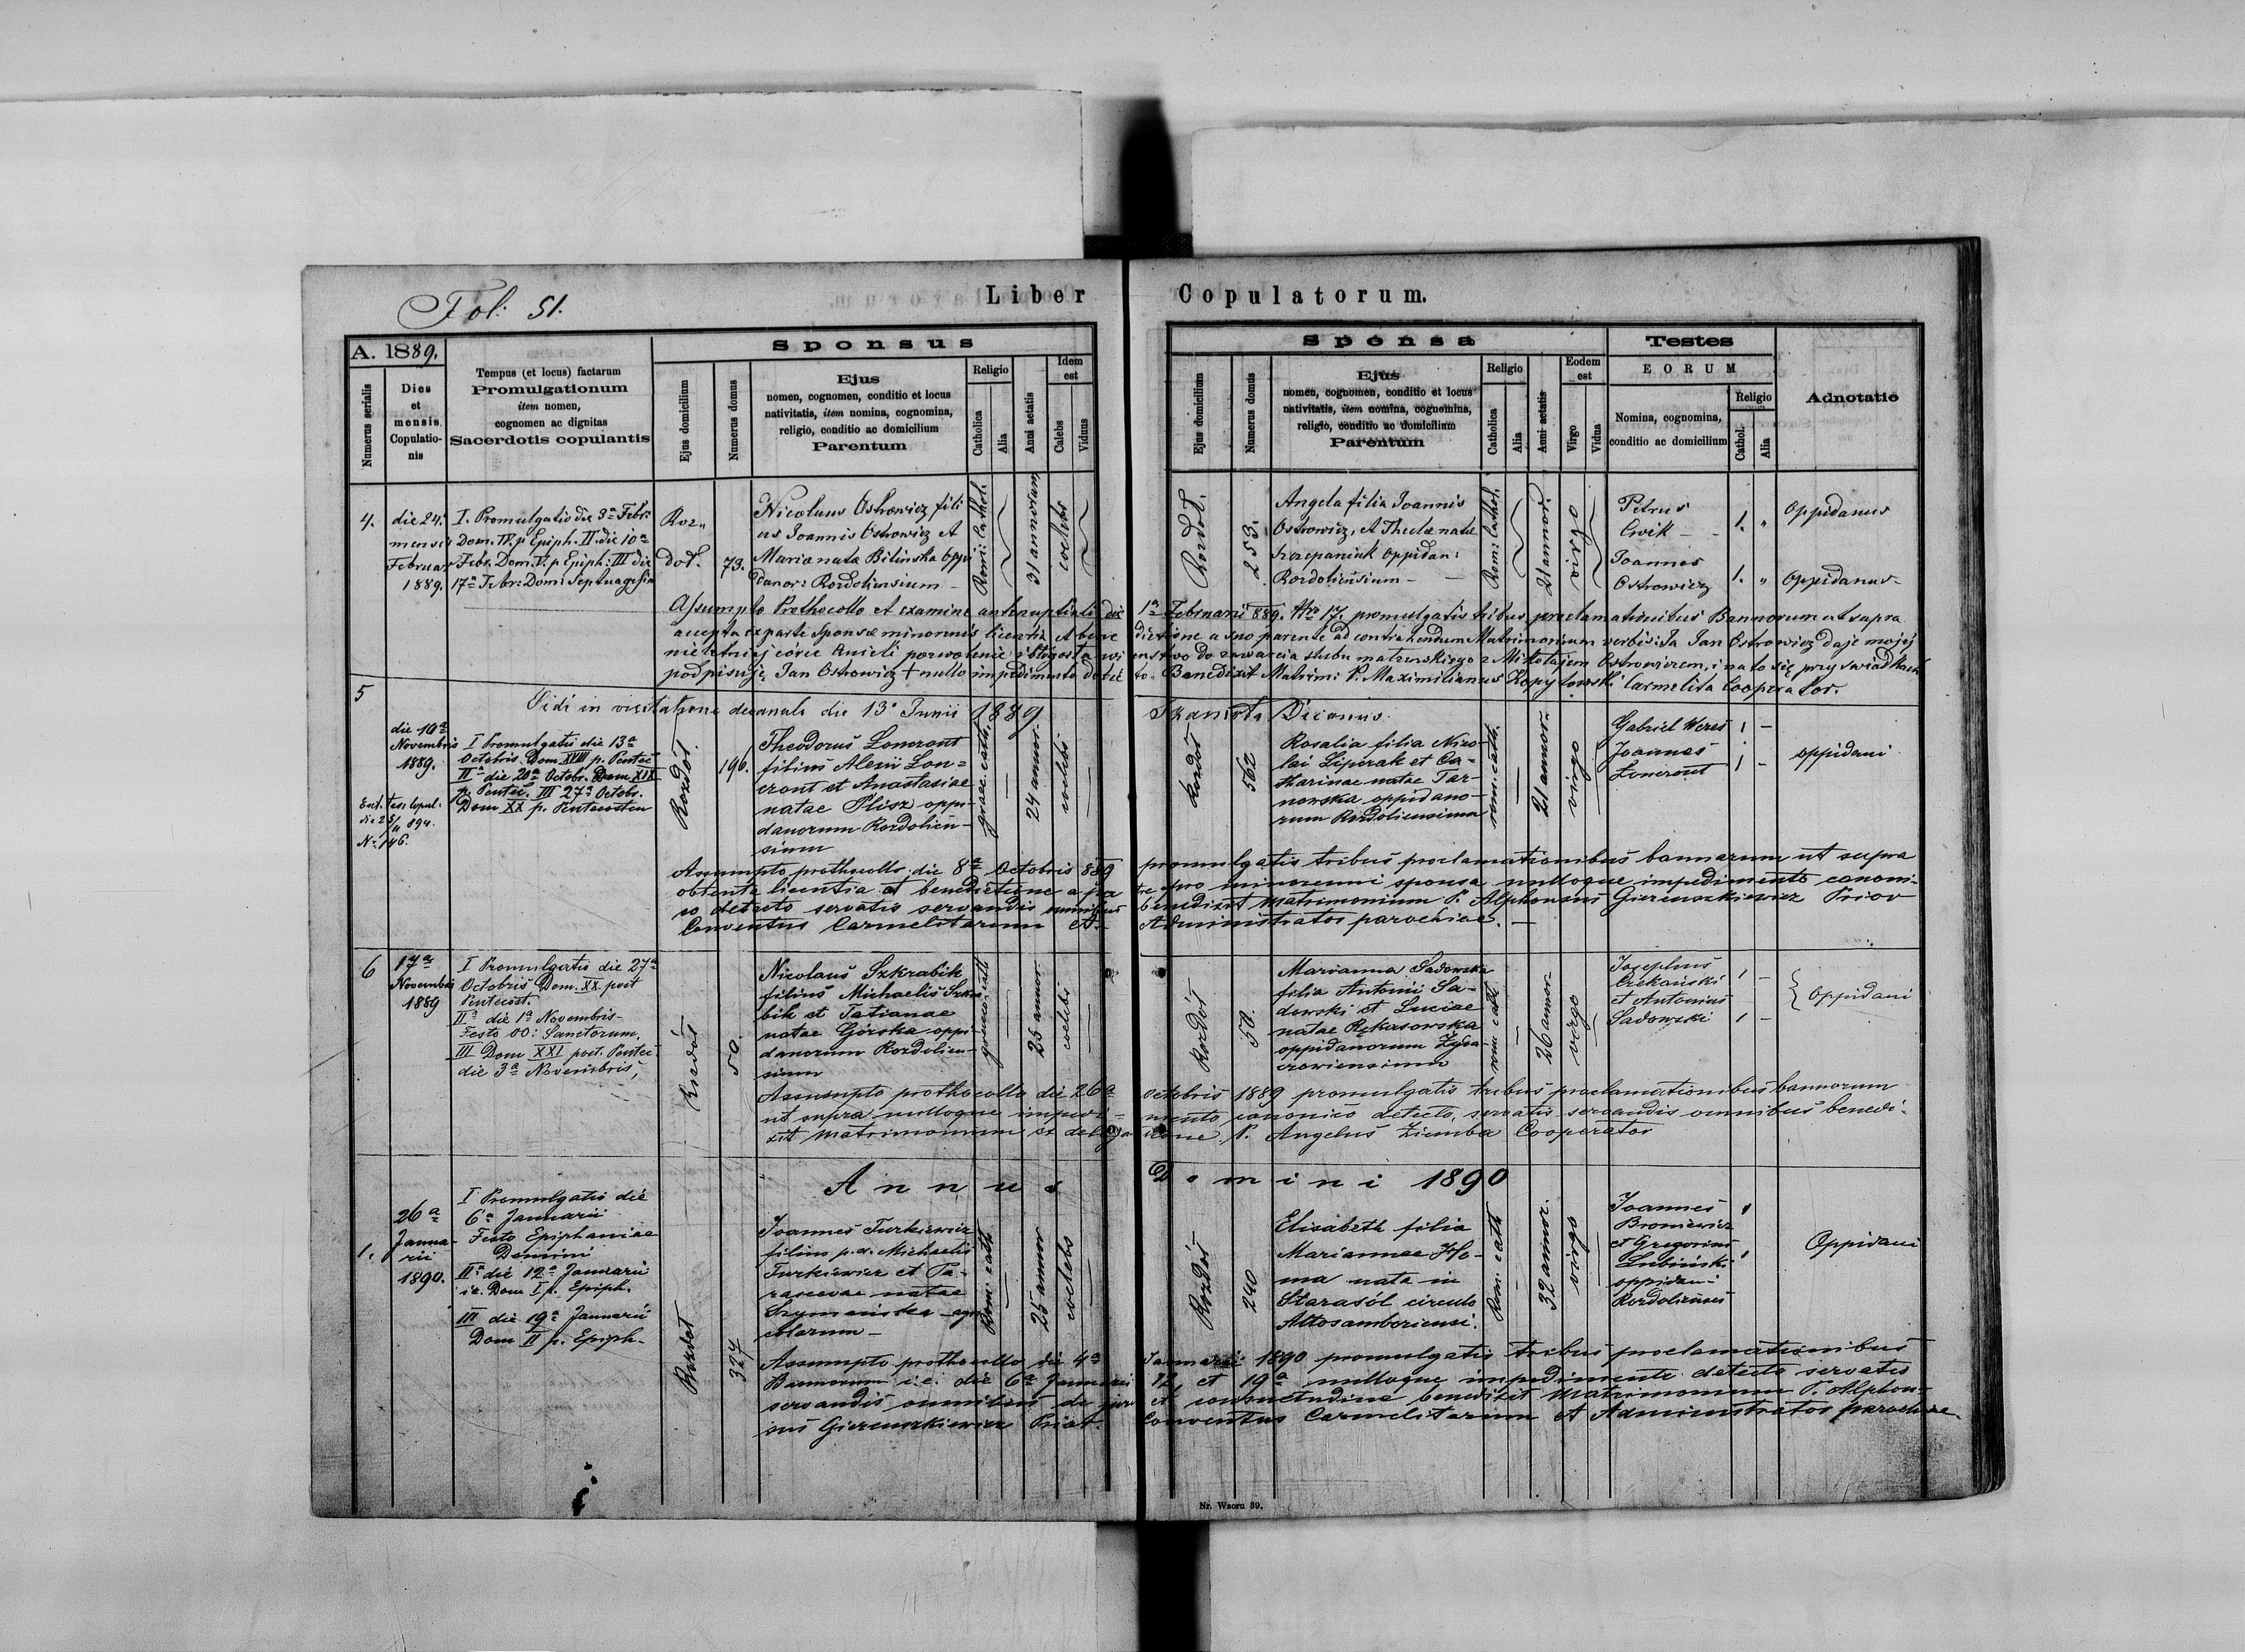 Fol: 51.
Liber Copulatorum.
A. 1889.
Numerus serialis
Dies
et
mensis
Copulatio-
nis
Tempus (et locus) factarum
Promulgationum
item nomen,
cognomen ac dignitas
Sacerdotis copulantis
Sponsus
Ejus domicilium
Numerus domus
Ejus
nomen, cognomen, conditio et locus
nativitatis, item nomina, cognomina,
religio, conditio ac domicilium
Parentum
Religio
Catholica
Alia
Anni aetatis
Idem
est
Calebs
Viduus
Sponsa
Ejus domicilium
Numerus domus
Ejus
nomen, cognomen, conditio et locus
nativitatis, item nomina, cognomina,
religio, conditio ac domicilium
Parentum
Religio
Catholica
Alia
Anni aetatis
Eodem
est
Virgo
Vidua
Testes
EORUM
Nomina, cognomina,
conditio ac domicilium
Religio
Cathol.
Alia
Adnotatio
4.
die 24.
mensis
Februar.
1889.
I. Promulgatio die 3a Febr:
Dom. IV. p. Epiph. II. die 10a
Febr. Dom. V. p. Epiph: III die
17a Febr: Dom: Septuagesim
Roz„
doł.
73.
Nicolaus Ostrowicz fili
us Joannis Ostrowicz et
Maria nata Bilinska oppi
danor: Rozdoliensium -
Rom: Cathol.
31 annorum
coelebs
Rozdoł.
253.
Angela filia Joannis
Ostrowicz, et Theclæ natæ
Szczepaniuk oppidan:
Rozdoliensium -
Rom: Cathol.
21 annor:
virgo
Petrus
Cwik -
1. „
Oppidanus
Joannes
Ostrowicz
1. „
Oppidanus
Assumpto Prothocollo et examine antenuptiali die 1a Februarii 889. Nro 17. promulgatis tribus proclamationibus Bannorum ut supra
accepta ex parte Sponsæ minorenis licentia et bene dictione a suo parente ad contrahendum Matrimonium verbis: Ja Jan Ostrowicz daję mojej
nieletniej córce Anieli pozwolenie i błogosławi enstwo do zawarcia ślubu małzenskiego z Mikołajem Ostrowiczem, i na to się przy swiadkach
podpisuję Jan Ostrowicz + nullo impedimento detec to. Benedixit Matrim: P. Maximilianus Kopytowski Carmelita Cooperator.
5
Vidi in visitatione decanali die 13. Junii 1889
Decanus.
die 10a
Novembris
1889.
Ext. tes. Copul.
die 25/11 894.
No 146.
I Promulgatio die 13a
Octobris Dom XVIII p. Pentec
IIa die 20a Octobr. Dom XIX
p. Pentec. III 27a Octobr.
Dom XX p. Pentecosten
Rozdoł.
196.
Theodorus Loncront
filius Alexii Lon=
cront et Anastasiae
natae Plisz oppi-
danorum Rozdolien-
sium
graec. cath.
24 annor.
coelebs
Rozdoł
562
Rosalia filia Nico-
lai Lipirak et Ca-
tharinae natae Tar-
nowska oppidano-
rum Rozdoliensium
rom. cath.
21 annor.
virgo
Gabriel Weres 1 -
Joannes
Loncront 1 -
oppidani
Assumpto prothocollo die 8a Octobris 889 promulgatis tribus proclamationibus bannorum ut supra
obtenta licentia et benedictione a pa tre pro minorenni sponsa nulloque impedimento canoni-
co detecto servatis servandis omnibus benedixit matrimonium P. Alphonsus Giereuszkiewicz Prior
Conventus Carmelitarum et Administrator parochiae.
6
17a
Novembris
1889
I Promulgatio die 27a
Octobris Dom. XX. post
Pentecost.
IIa die 1a Novembris
Festo OO: Sanctorum,
III Dom XXI post. Pentec.
die 3a Novembris,
Rozdół
50.
Nicolaus Szkrabik
filius Michaelis Szkra
bik et Tatianae
natae Górska oppi-
danorum Rozdolien-
sium
25 annor.
coelebs
Rozdół
50.
Marianna Sadowska
filia Antoni Sa-
dowski et Luciae
natae Rękasowska
oppidanorum Żyda
czowiensium
rom cath
26 annor.
virgo
Josephus
et Antonius
Sadowski
1 -
1 -
Oppidani
Assumpto prothocollo die 26a Octobris 1889 promulgatis tribus proclamationibus bannorum
ut supra nulloque impedi= mento canonico detecto, servatis servandis omnibus benedi-
xit matrimonium ex delega tione P. Angelus Ziemba Cooperator
Annus Domini 1890
1.
26a
Janua-
rii
1890.
I Promulgatio die
6a Januarii
Festo Epiphaniae
Domini
IIa die 12a Januarii
i.e. Dom I p. Epiph.
III die 19a Januarii
Dom II p. Epiph.
Rozdoł
327
Joannes Turkiewicz
filius p.d. Michaelis
Turkiewicz et Pa-
rascevae natae
Szymańska agri
colarum -
Rom: cath
25 annor
coelebs
Rozdół
240
Elisabeth filia
Mariannae Ho-
ma nata in
Starasól circulo
Altosamboriensi.
Rom: cath
32 annor.
virgo
Joannes
Broniewicz
et Gregorius
Lubiński
oppidani
Rozdolienses
Oppidani
Assumpto prothocollo die 4a Januarii 1890 promulgatis tribus proclamationibus
Bannorum i.e. die 6a Januarii 12, et 19a nulloque impedimento detecto servatis
servandis omnibus de jure et consuetudine benedixit matrimonium P. Alphon-
sus Giereuszkiewicz Prior Conventus Carmelitarum et Administrator parochiae.
Nr. Wzoru 39.